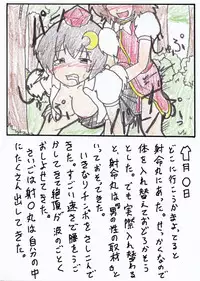 月〇日
どこに行こうかまよってると
射命丸にあった。せっかくなので
体を入れ替えておどろかそう
とした。でも実際入れ替わる
と射命丸は「男の性の取材」と
いっておそってきた。
いきなりチンポをさしこんで
きた。すごい速さで腰をうご
かしてきて絶頂が波のごとく
おしよせてきた。
さいごは射〇丸は自分の中
にたくさん出してきた。